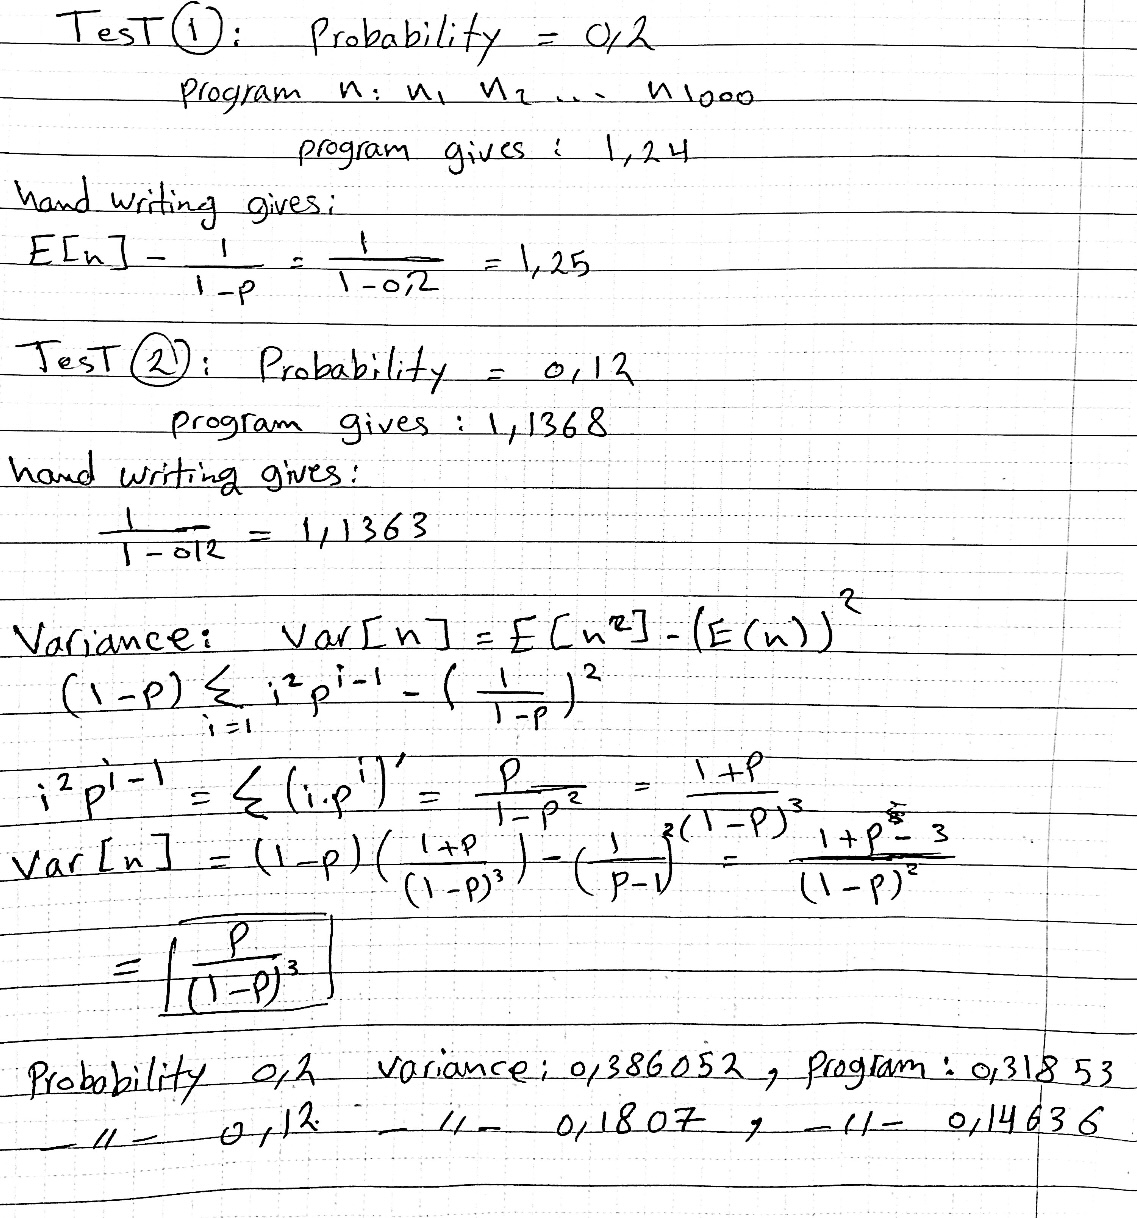 TesT ①: Probability = 0,2
program n: n₁ n₂ ... n1000
program gives: 1,24
hand writing gives:
E[n] - 1/(1-p) = 1/(1-0,2) = 1,25
TesT ②: Probability = 0,12
program gives: 1,1368
hand writing gives:
1/(1-012) = 1,1363
Variance: Var[n] = E[n²] - (E(n))²
(1-p) Σ_{i=1} i² p^{i-1} - (1/(1-p))²
i² p^{i-1} = Σ (i·p^i)' = p/(1-p²) = (1+p)/(1-p)³
Var[n] = (1-p)((1+p)/(1-p)³) - (1/(p-1))² = (1+p - 3)/(1-p)²
= p/(1-p)³
Probability 0,2 variance: 0,386052, program: 0,31853
-11- 0,12 -11- 0,1807, -11- 0,14636